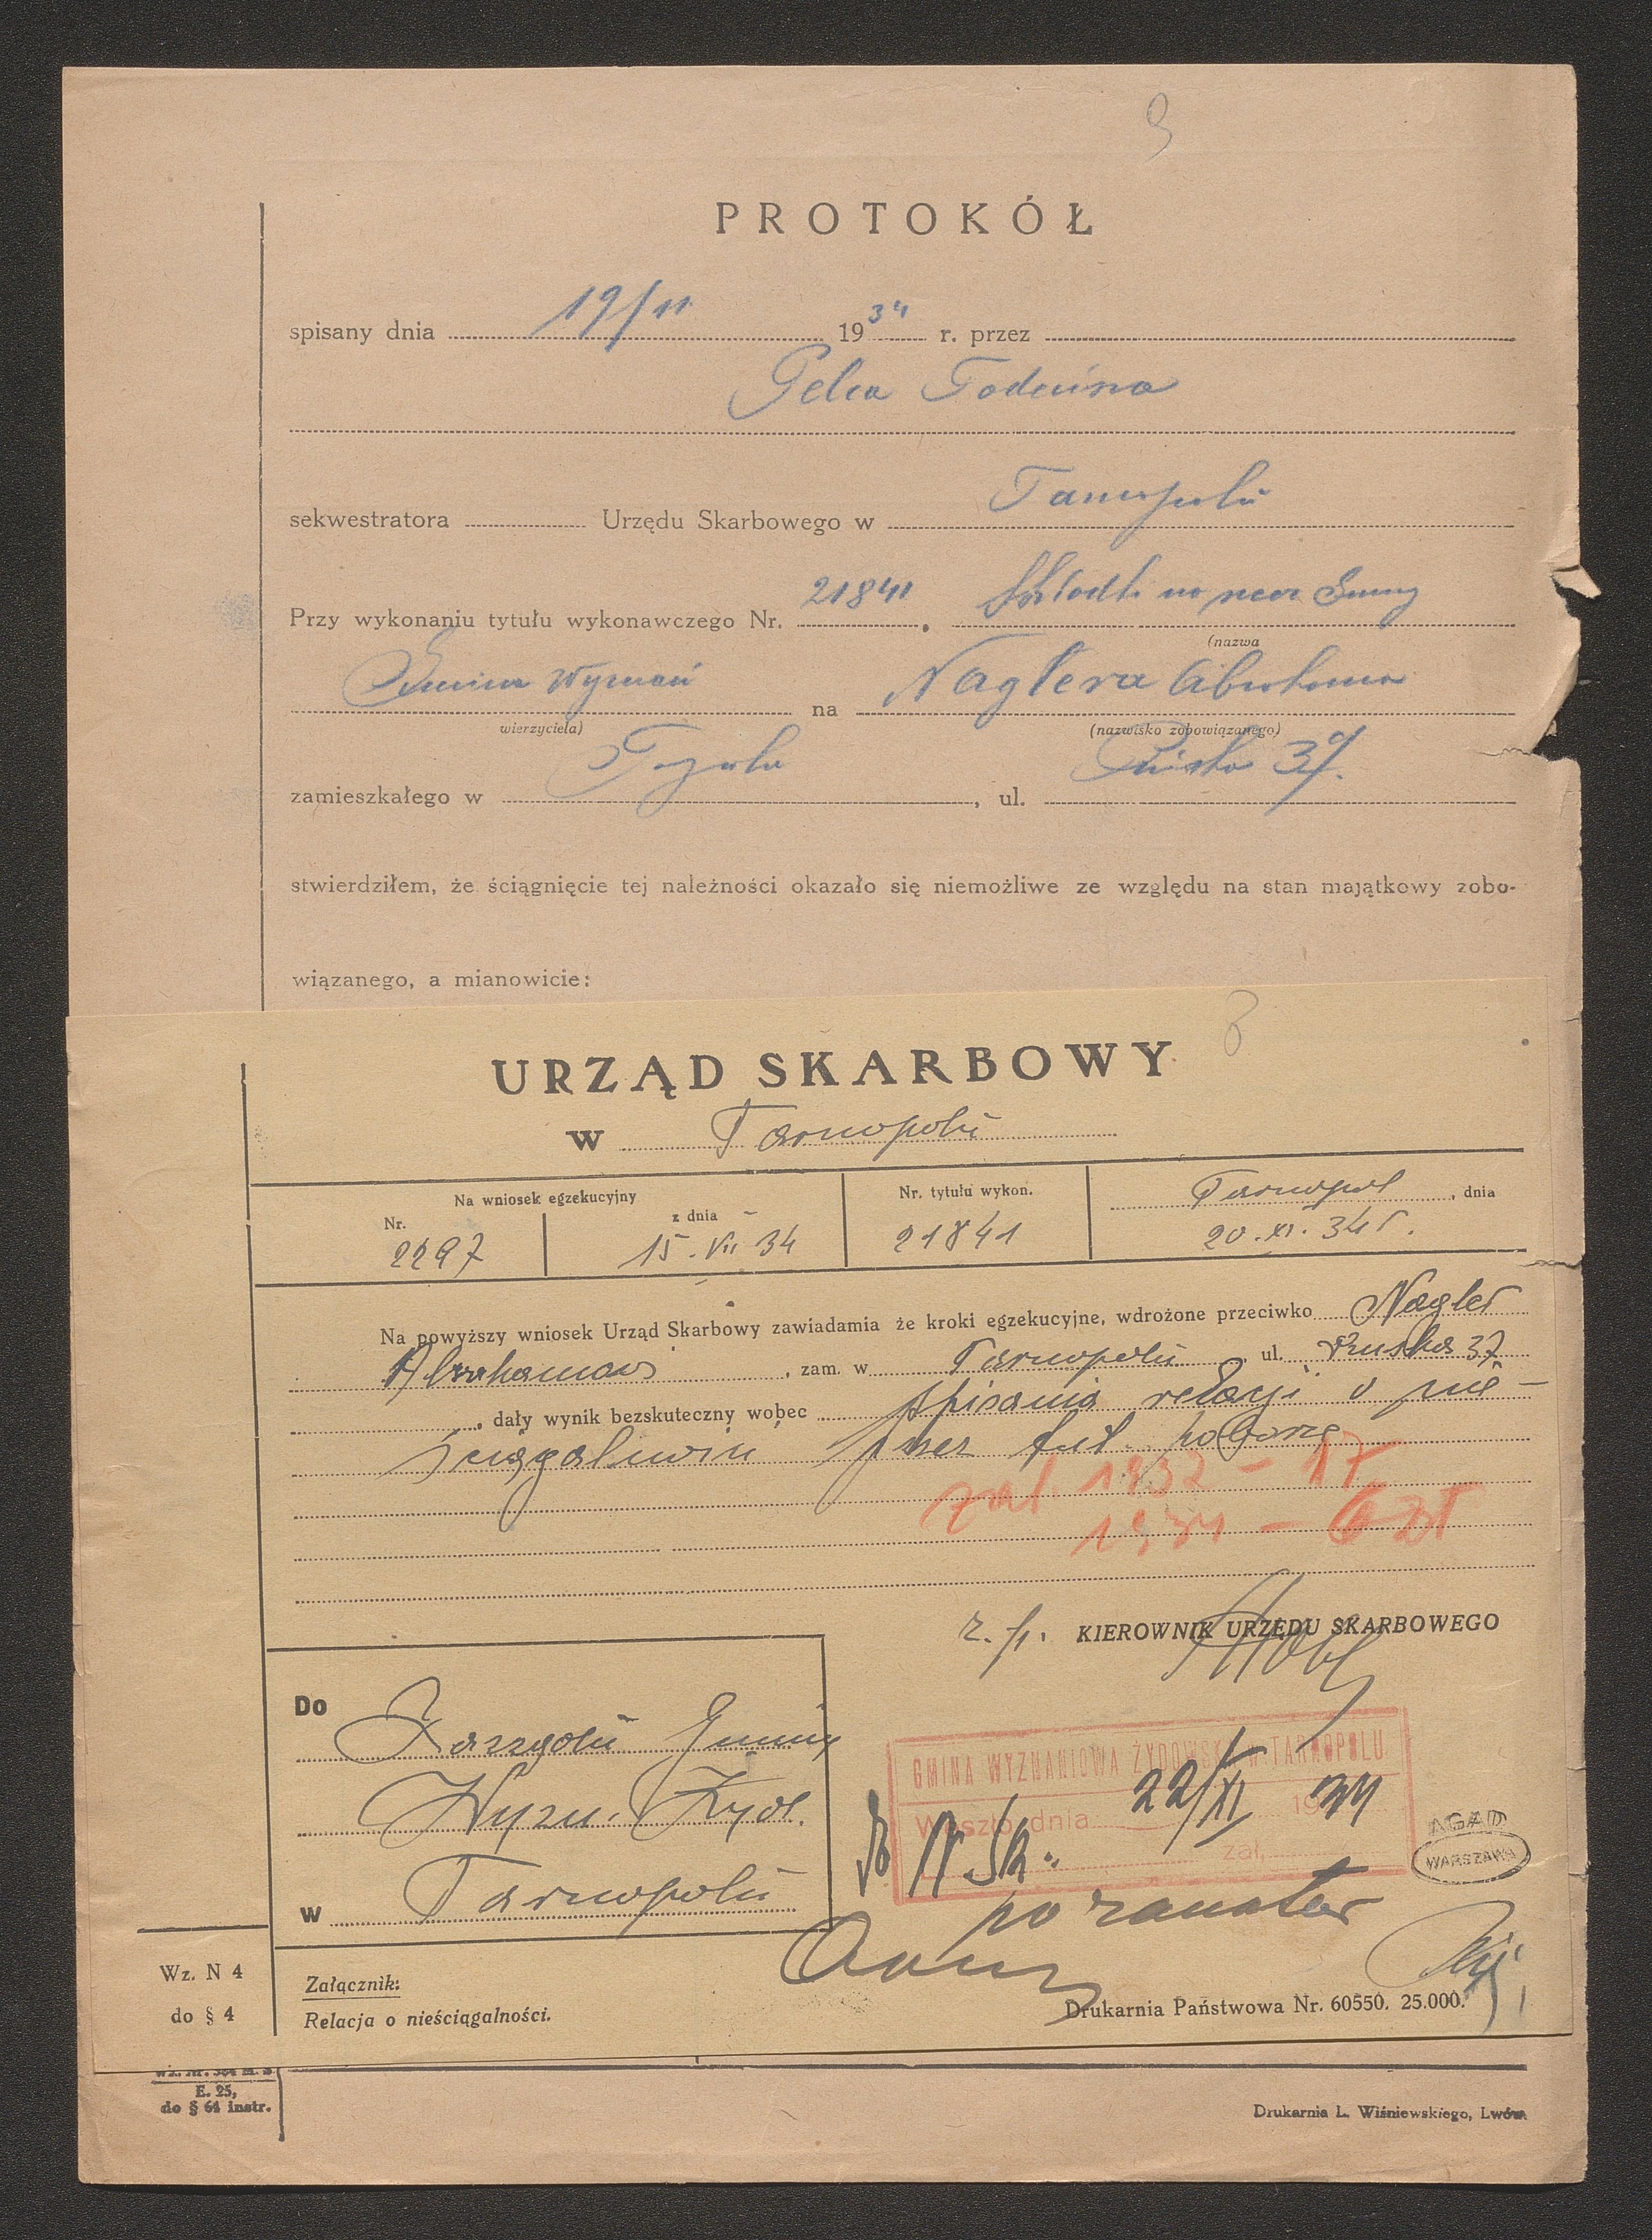 9
PROTOKÓŁ
spisany dnia 19/11 1934 r. przez
sekwestratora Urzędu Skarbowego w Tarnopolu
Przy wykonaniu tytułu wykonawczego Nr. 21841,
(nazwa
Gmina Wyznań na Naglera Abrahama
wierzyciela) (nazwisko zobowiązanego)
zamieszkałego w , ul. 37.
stwierdziłem, że ściągnięcie tej należności okazało się niemożliwe ze względu na stan majątkowy zobo-
wiązanego, a mianowicie:
8
URZĄD SKARBOWY
w Tarnopolu
Na wniosek egzekucyjny Nr. tytułu wykon. Tarnopol, dnia
Nr. z dnia
2297 15. VII 34 21841 20. XI. 34 r.
Na powyższy wniosek Urząd Skarbowy zawiadamia że kroki egzekucyjne, wdrożone przeciwko Nagler
Abrahamowi, zam. w Tarnopolu ul. Ruska 37
, dały wynik bezskuteczny wobec spisania relacji o nie-
ściągalności przez tut. poborcę
zal. 1932 - 17
1934 - 6 zł
z. p. KIEROWNIK URZĘDU SKARBOWEGO
Do Zarządu Gminy
Wyzn. Żyd.
w Tarnopolu
GMINA WYZNANIOWA ŻYDOWSKA W TARNOPOLU
Weszło dnia 22/XI 1934
zał.
AGAD
WARSZAWA
Wz. N 4
do § 4
Załącznik:
Relacja o nieściągalności.
Drukarnia Państwowa Nr. 60550. 25.000.
E. 25,
do § 64 instr.
Drukarnia L. Wiśniewskiego, Lwów.